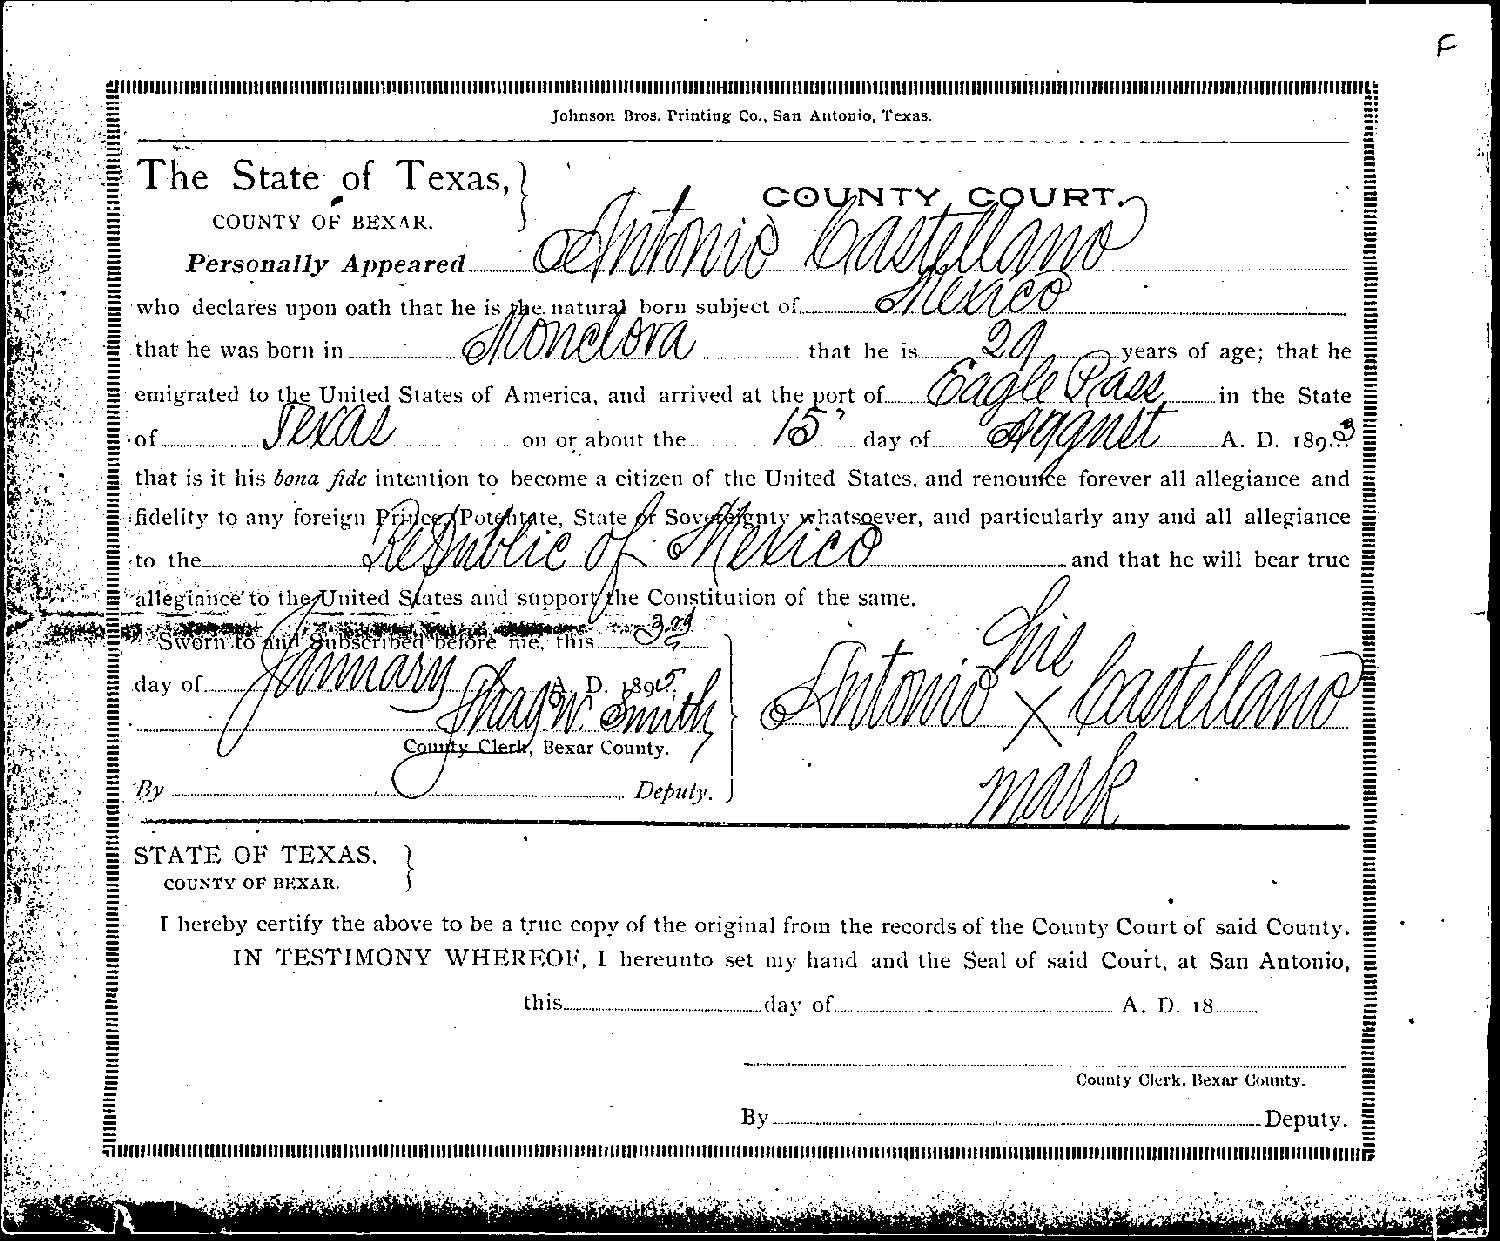 F
Johnson Bros. Printing Co., San Antonio, Texas.
The State of Texas,
COUNTY OF BEXAR.
COUNTY COURT.
Personally Appeared Antonio Castellano
who declares upon oath that he is the natural born subject of Mexico
that he was born in Monclova that he is 29 years of age; that he
emigrated to the United States of America, and arrived at the port of Eagle Pass in the State
of Texas on or about the 15" day of August A. D. 1893
that is it his bona fide intention to become a citizen of the United States, and renounce forever all allegiance and
fidelity to any foreign Prince, Potentate, State or Sovereignty whatsoever, and particularly any and all allegiance
to the Republic of Mexico and that he will bear true
allegiance to the United States and support the Constitution of the same.
Sworn to and Subscribed before me, this 3rd
day of January A. D. 1895
Thad W. Smith
County Clerk, Bexar County.
By Deputy.
his
Antonio X Castellano
mark
STATE OF TEXAS.
COUNTY OF BEXAR.
I hereby certify the above to be a true copy of the original from the records of the County Court of said County.
IN TESTIMONY WHEREOF, I hereunto set my hand and the Seal of said Court, at San Antonio,
this day of A. D. 18
County Clerk, Bexar County.
By Deputy.